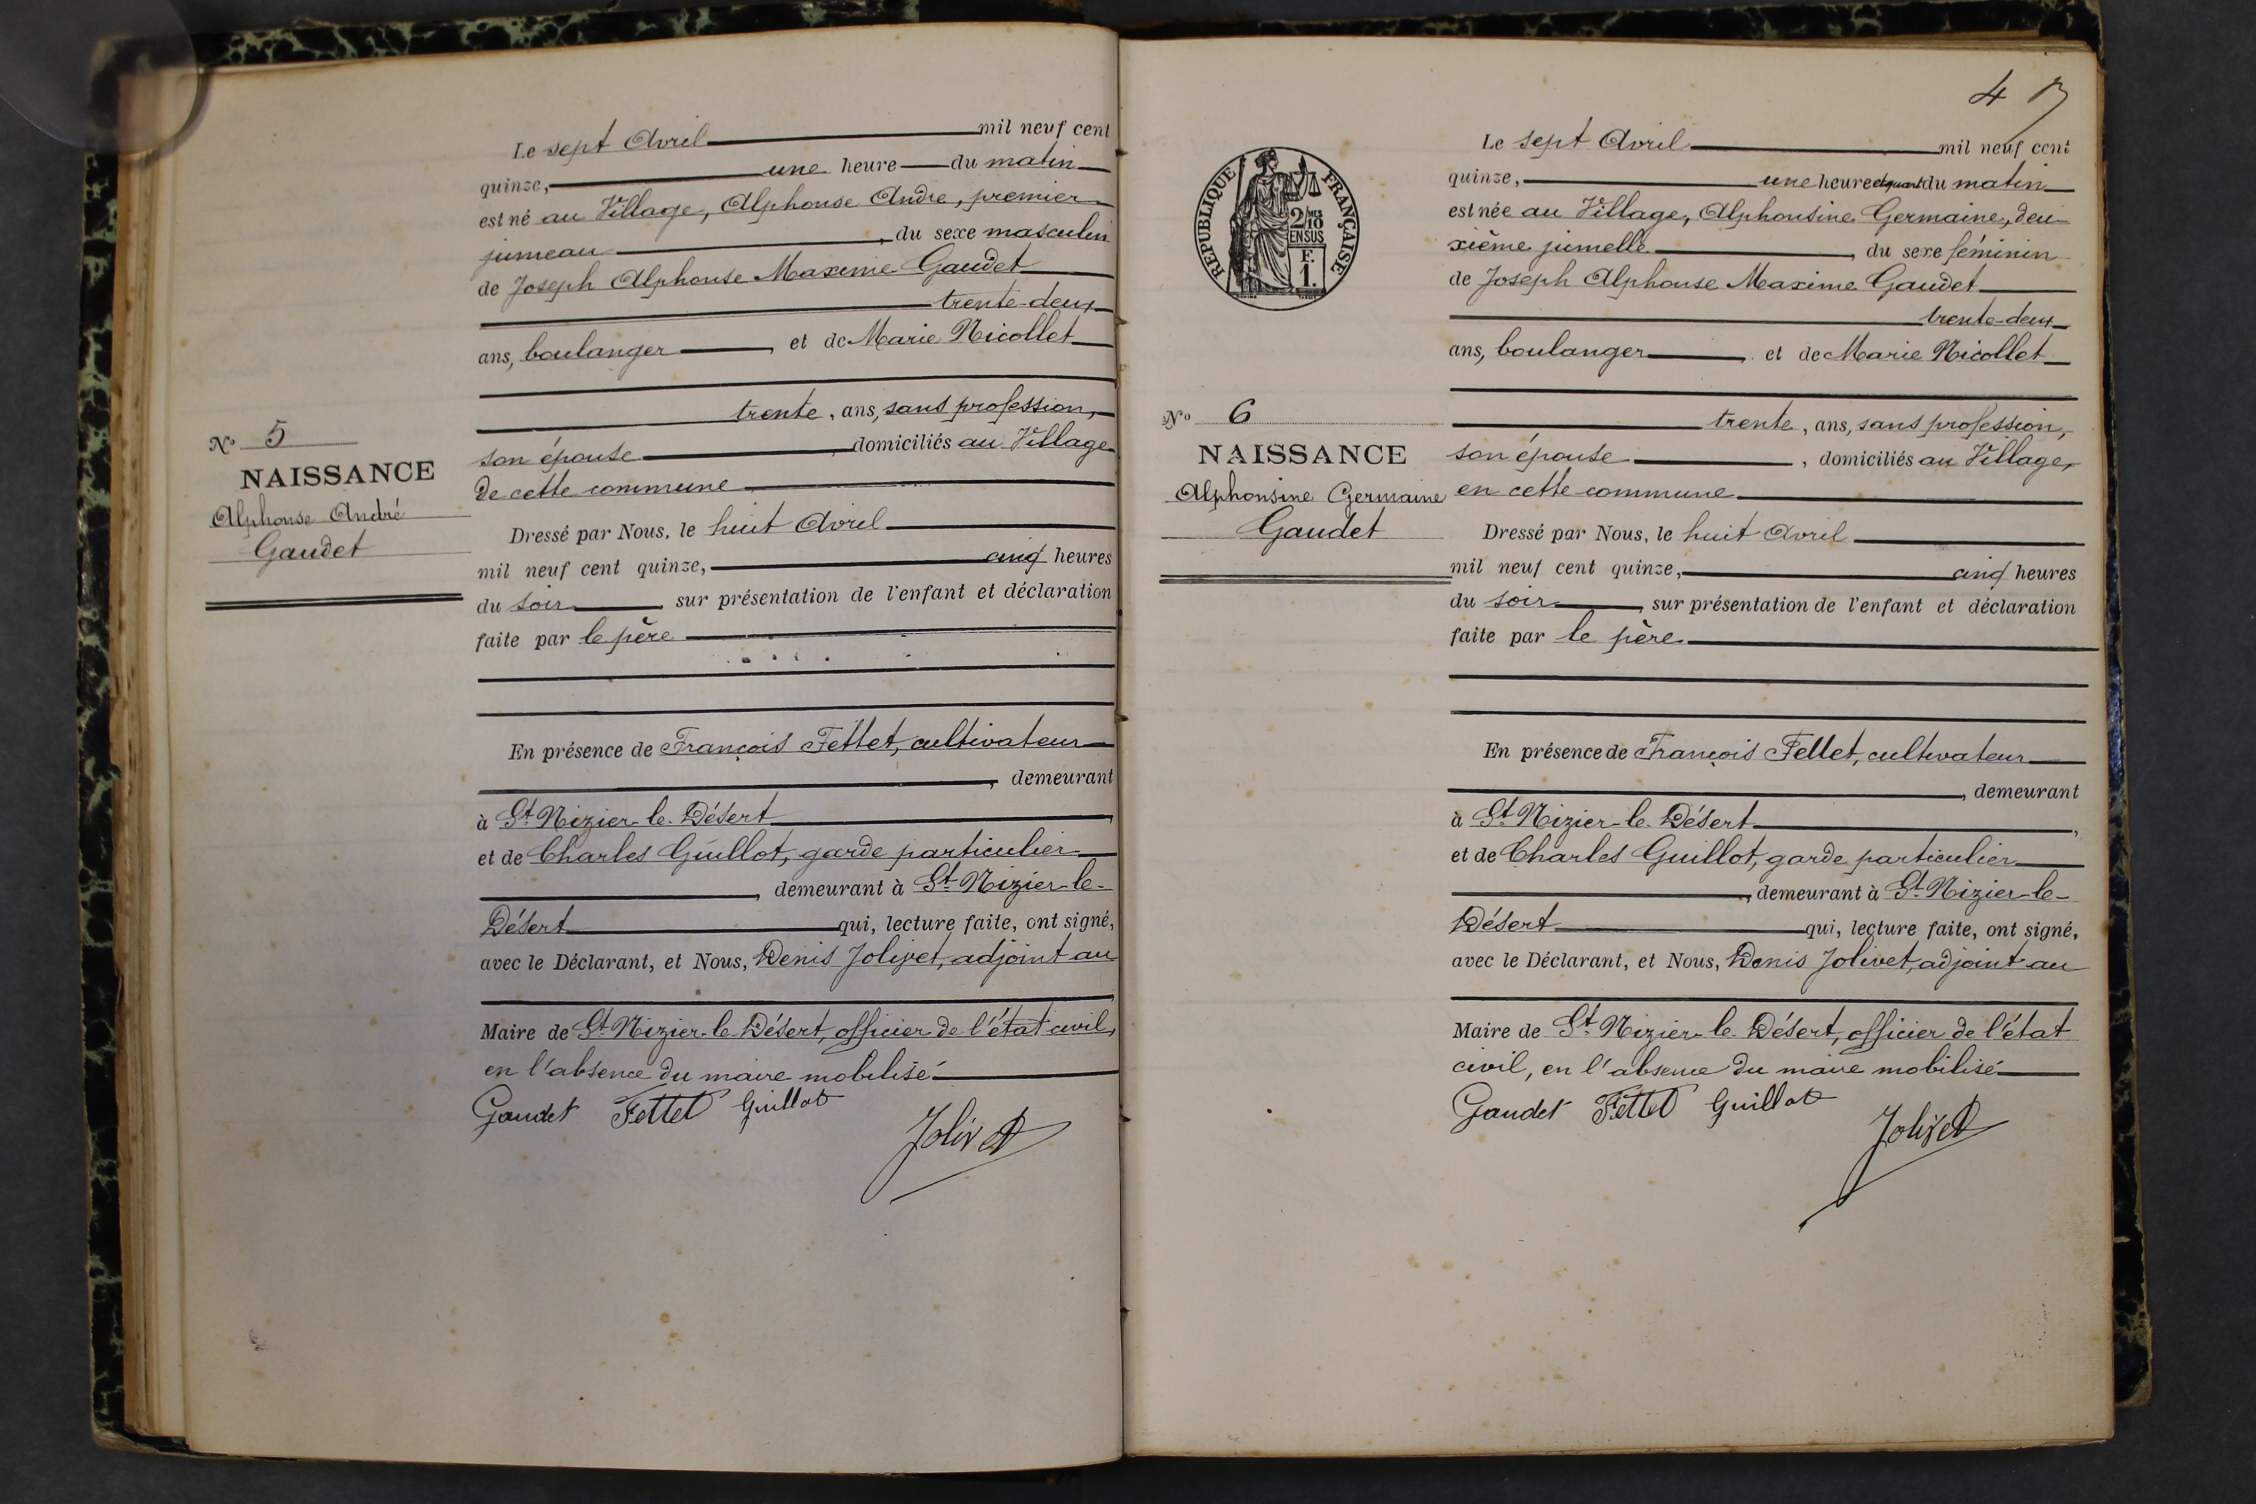 Le sept Avril mil neuf cent
quinze, une heure du matin
est né au Village, Alphonse Andre, premier
jumeau , du sexe masculin
de Joseph Alphonse Maxime Gaudet
trente-deux
ans, boulanger , et de Marie Nicollet
trente, ans, sans profession,
son épouse , domiciliés au Village
de cette commune
Nº 5
NAISSANCE
Alphonse André
Gaudet
Dressé par Nous, le huit Avril
mil neuf cent quinze, cinq heures
du soir , sur présentation de l'enfant et déclaration
faite par le père
En présence de François Fettet, cultivateur
, demeurant
à St Nizier-le-Désert ,
et de Charles Guillot, garde particulier
, demeurant à St Nizier-le-
Désert qui, lecture faite, ont signé,
avec le Déclarant, et Nous, Denis Jolivet, adjoint au
Maire de St Nizier-le-Désert, officier de l'état civil,
en l'absence du maire mobilisé
Gaudet Fettet Guillot
Jolivet
4
RÉPUBLIQUE FRANÇAISE
2/10
EN SUS
F.
1.
Le sept Avril mil neuf cent
quinze, une heure et quart du matin
est née au Village, Alphonsine Germaine, deu-
xième jumelle , du sexe féminin
de Joseph Alphonse Maxime Gaudet
trente-deux
ans, boulanger , et de Marie Nicollet
trente, ans, sans profession,
son épouse , domiciliés au Village,
en cette commune
Nº 6
NAISSANCE
Alphonsine Germaine
Gaudet
Dressé par Nous, le huit Avril
mil neuf cent quinze, cinq heures
du soir , sur présentation de l'enfant et déclaration
faite par le père
En présence de François Fettet, cultivateur
, demeurant
à St Nizier-le-Désert ,
et de Charles Guillot, garde particulier
, demeurant à St Nizier-le-
Désert qui, lecture faite, ont signé,
avec le Déclarant, et Nous, Denis Jolivet, adjoint au
Maire de St Nizier-le-Désert, officier de l'état
civil, en l'absence du maire mobilisé
Gaudet Fettet Guillot
Jolivet